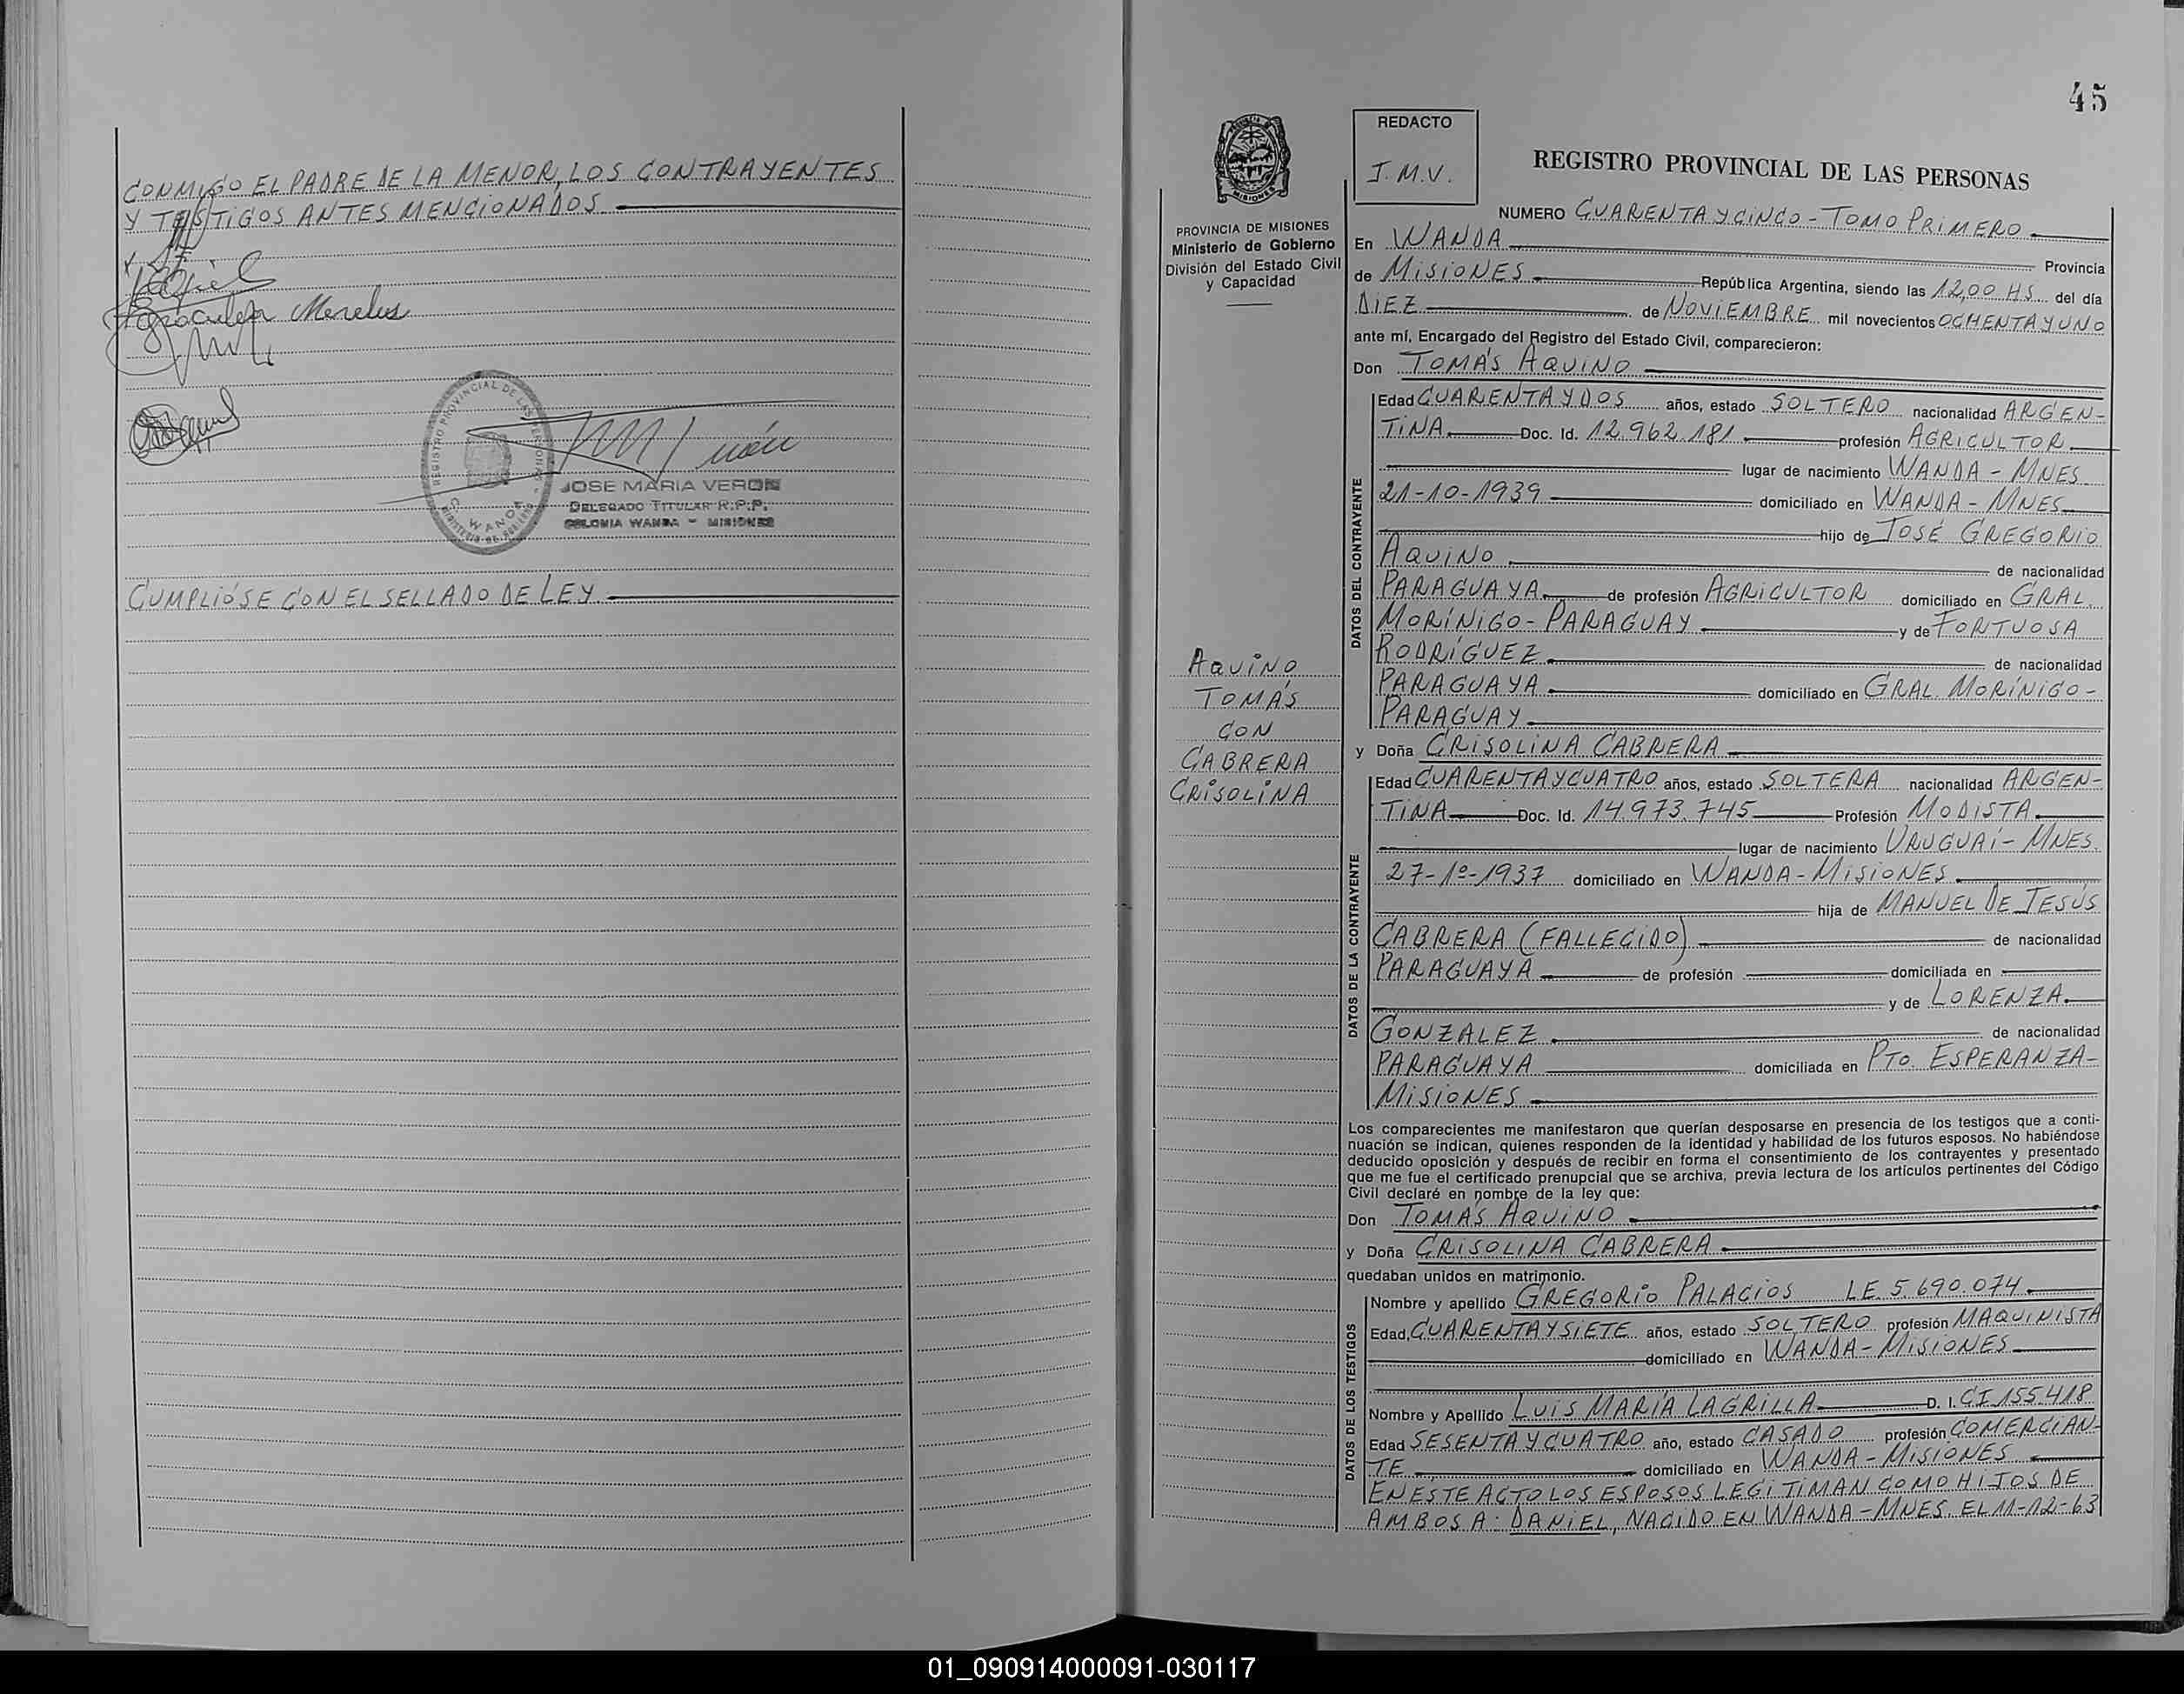 CONMIGO EL PADRE DE LA MENOR, LOS CONTRAYENTES
Y TESTIGOS ANTES MENCIONADOS.
JOSE MARIA VERON
DELEGADO TITULAR R.P.P.
COLONIA WANDA - MISIONES
CUMPLIÓSE CON EL SELLADO DE LEY.
45
REDACTO
J.M.V.
REGISTRO PROVINCIAL DE LAS PERSONAS
PROVINCIA DE MISIONES
Ministerio de Gobierno
División del Estado Civil
y Capacidad
AQUINO
TOMÁS
CON
CABRERA
CRISOLINA
NUMERO CUARENTA Y CINCO - TOMO PRIMERO.
En WANDA Provincia
de MISIONES República Argentina, siendo las 12,00 HS. del día
DIEZ de NOVIEMBRE mil novecientos OCHENTA Y UNO
ante mí, Encargado del Registro del Estado Civil, comparecieron:
Don TOMÁS AQUINO
DATOS DEL CONTRAYENTE
Edad CUARENTA Y DOS años, estado SOLTERO nacionalidad ARGEN-
TINA Doc. Id. 12.962.181 profesión AGRICULTOR
lugar de nacimiento WANDA - MNES.
21-10-1939 domiciliado en WANDA - MNES.
hijo de JOSÉ GREGORIO
AQUINO de nacionalidad
PARAGUAYA de profesión AGRICULTOR domiciliado en GRAL.
MORÍNIGO - PARAGUAY y de FORTUOSA
RODRÍGUEZ de nacionalidad
PARAGUAYA domiciliado en GRAL. MORÍNIGO -
PARAGUAY
y Doña CRISOLINA CABRERA
DATOS DE LA CONTRAYENTE
Edad CUARENTA Y CUATRO años, estado SOLTERA nacionalidad ARGEN-
TINA Doc. Id. 14.973.745 Profesión MODISTA
lugar de nacimiento URUGUAÍ - MNES.
27-1º-1937 domiciliado en WANDA - MISIONES
hija de MANUEL DE JESÚS
CABRERA (FALLECIDO) de nacionalidad
PARAGUAYA de profesión domiciliada en
y de LORENZA
GONZALEZ de nacionalidad
PARAGUAYA domiciliada en PTO. ESPERANZA -
MISIONES
Los comparecientes me manifestaron que querían desposarse en presencia de los testigos que a conti-
nuación se indican, quienes responden de la identidad y habilidad de los futuros esposos. No habiéndose
deducido oposición y después de recibir en forma el consentimiento de los contrayentes y presentado
que me fue el certificado prenupcial que se archiva, previa lectura de los artículos pertinentes del Código
Civil declaré en nombre de la ley que:
Don TOMÁS AQUINO
y Doña CRISOLINA CABRERA
quedaban unidos en matrimonio.
DATOS DE LOS TESTIGOS
Nombre y apellido GREGORIO PALACIOS LE. 5.690.074
Edad CUARENTA Y SIETE años, estado SOLTERO profesión MAQUINISTA
domiciliado en WANDA - MISIONES
Nombre y Apellido LUIS MARÍA LAGRILLA D. I. CI 155.418
Edad SESENTA Y CUATRO año, estado CASADO profesión COMERCIAN-
TE domiciliado en WANDA - MISIONES
EN ESTE ACTO LOS ESPOSOS LEGITIMAN COMO HIJOS DE
AMBOS A: DANIEL, NACIDO EN WANDA - MNES. EL 11-12-63
01_090914000091-030117